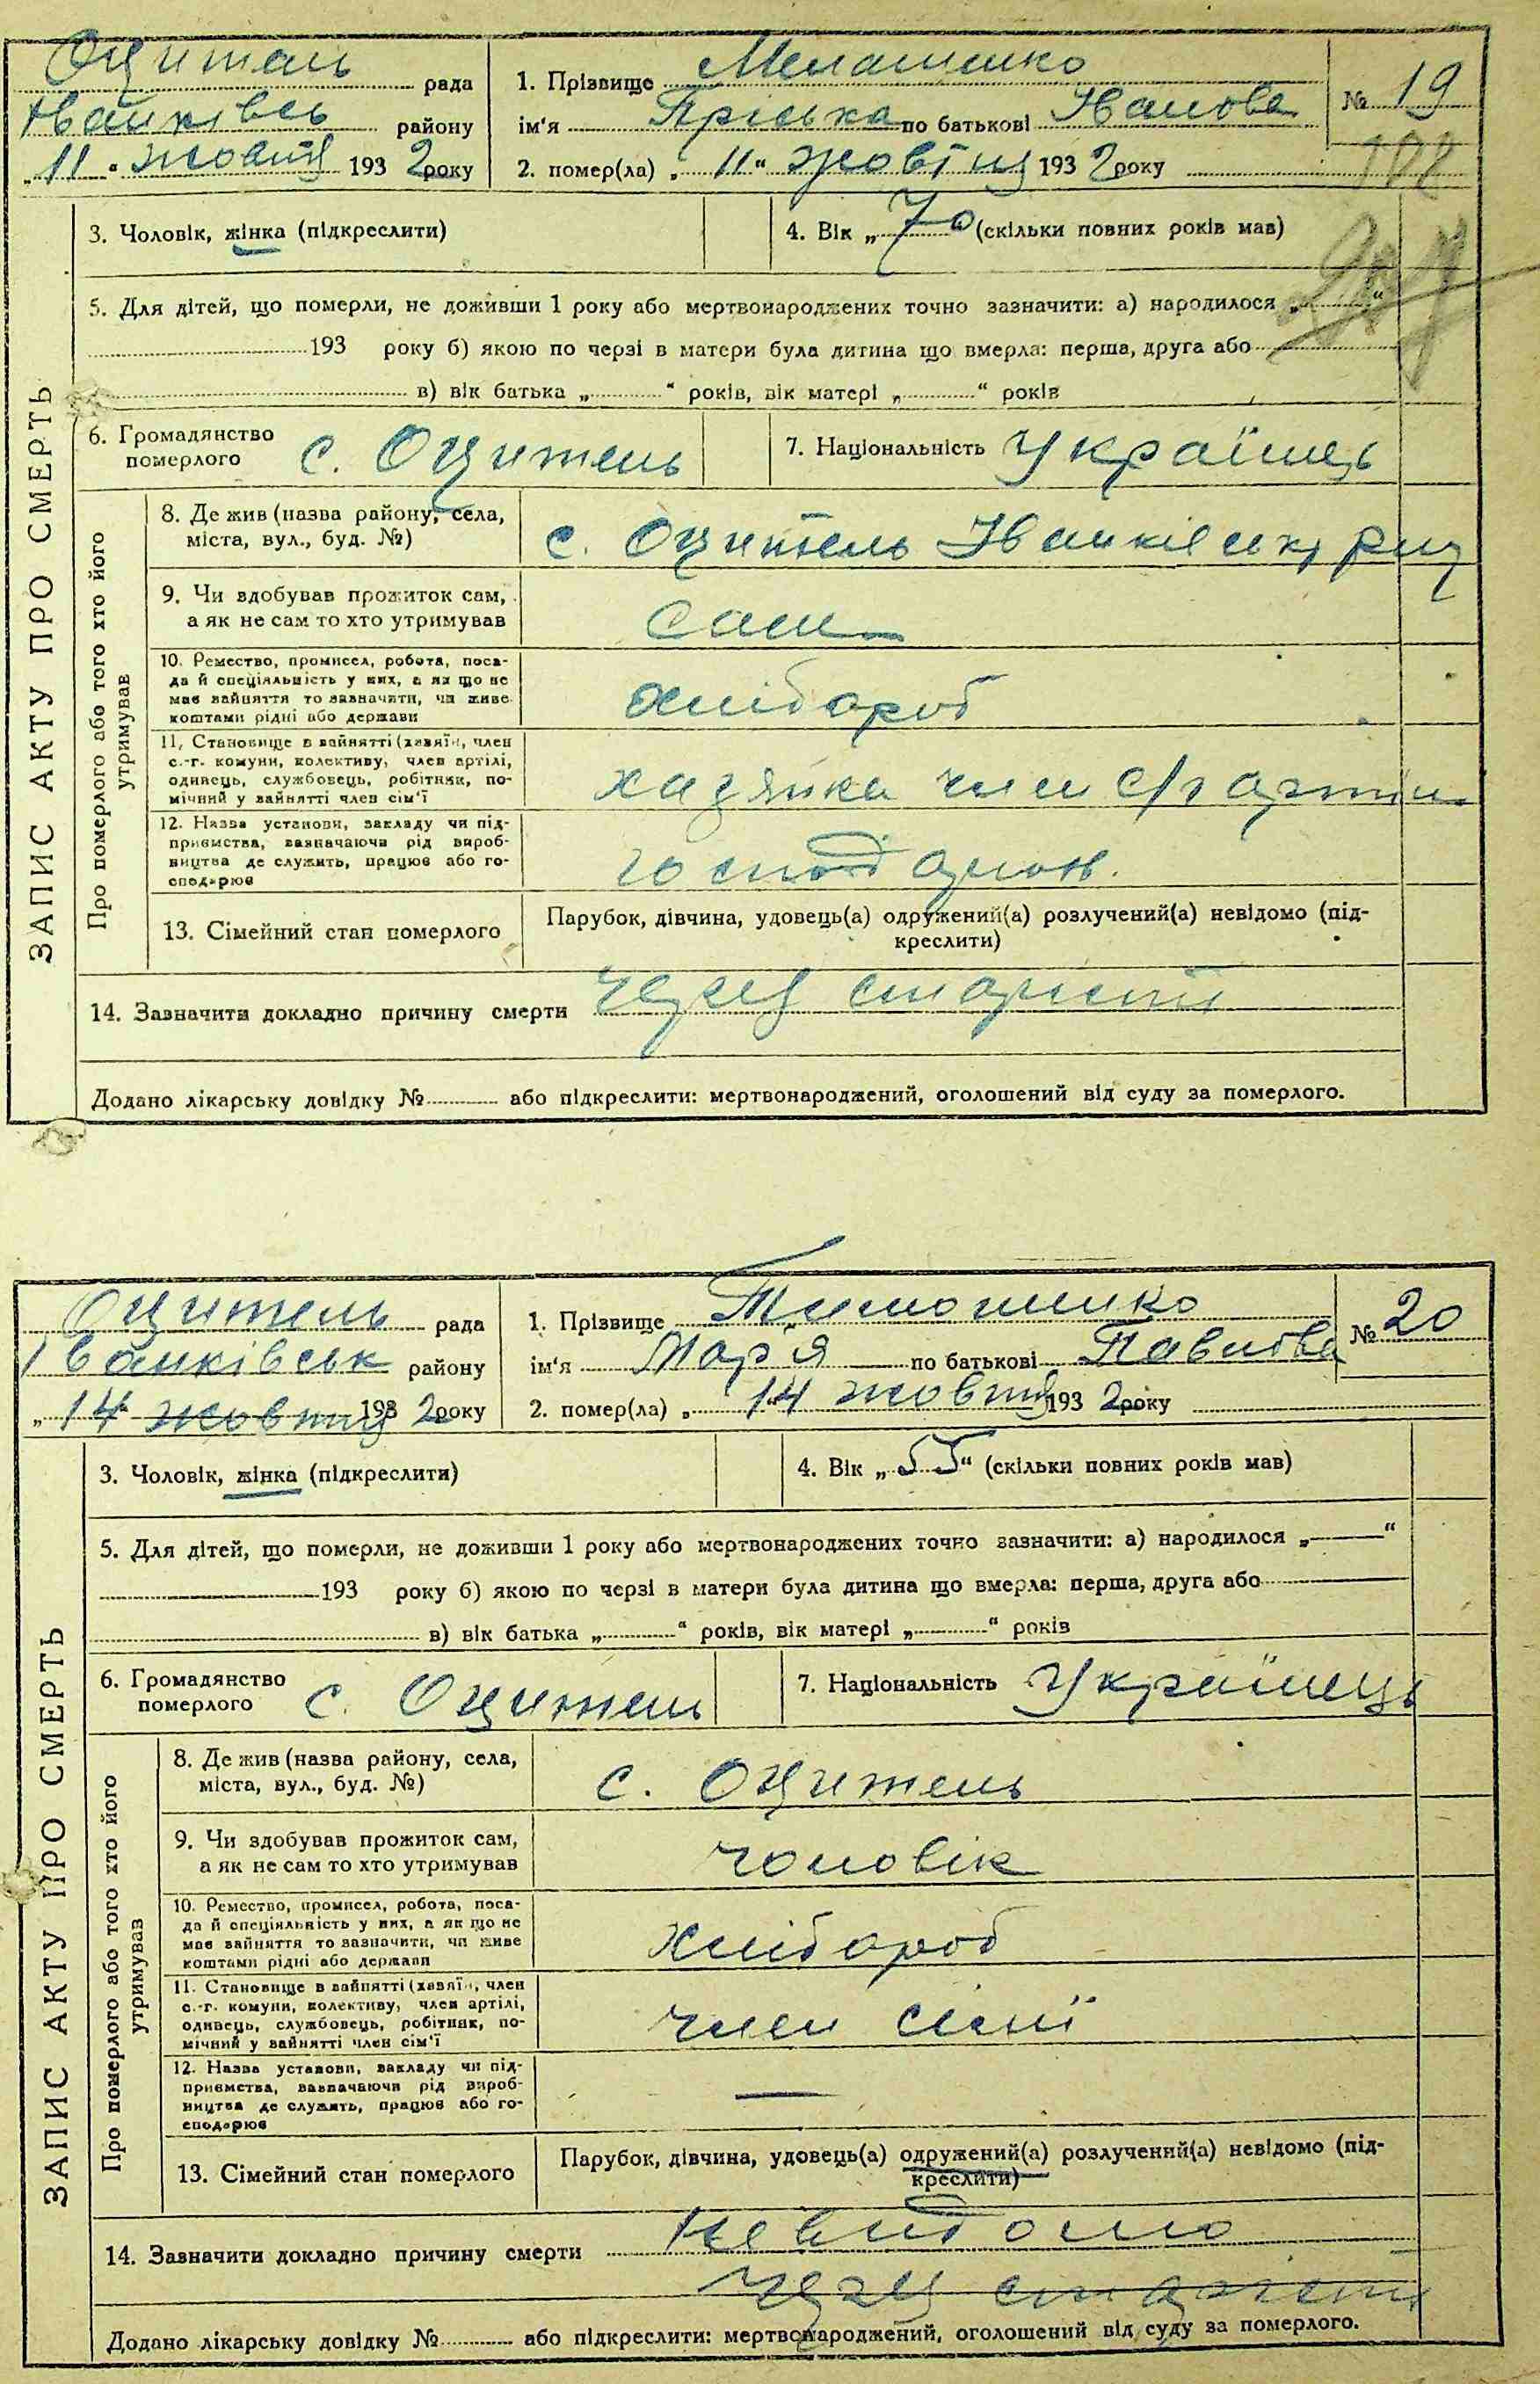 Оцитель рада
Іванківсь району
„11“ жовтня 1932 року
1. Прізвище Мелашенко
ім'я Пріська по батькові Іванова
2. помер(ла) „11“ жовтня 1932 року
№ 19
3. Чоловік, жінка (підкреслити)
4. Вік „70“ (скільки повних років мав)
5. Для дітей, що померли, не доживши 1 року або мертвонароджених точно зазначити: а) народилося „ “
193 року б) якою по черзі в матери була дитина що вмерла: перша, друга або
в) вік батька „ “ років, вік матері „ “ років
6. Громадянство
померлого
с. Оцитель
7. Національність Українець
ЗАПИС АКТУ ПРО СМЕРТЬ
Про померлого або того хто його
утримував
8. Де жив (назва району, села,
міста, вул., буд. №)
с. Оцитель Іванківськ р-ну
9. Чи здобував прожиток сам,
а як не сам то хто утримував
сам
10. Ремество, промисел, робота, поса-
да й спеціяльність у них, а як що не
має зайняття то зазначити, чи живе
коштами рідні або держави
хлібороб
11. Становище в зайнятті (хазяїн, член
с.-г. комуни, колективу, член артілі,
одинець, службовець, робітник, по-
мічний у зайнятті член сім'ї
хазяйка член с/г артіли
12. Назва установи, закладу чи під-
приємства, зазначаючи рід вироб-
ництва де служить, працює або го-
сподарює
господ
13. Сімейний стан померлого
Парубок, дівчина, удовець(а) одружений(а) розлучений(а) невідомо (під-
креслити)
14. Зазначити докладно причину смерти через старисть
Додано лікарську довідку № або підкреслити: мертвонароджений, оголошений від суду за померлого.
Оцитель рада
Іванківськ району
„14“ жовтня 1932 року
1. Прізвище Тимошенко
ім'я Мар'я по батькові Павлова
2. помер(ла) „14“ жовтня 1932 року
№ 20
3. Чоловік, жінка (підкреслити)
4. Вік „55“ (скільки повних років мав)
5. Для дітей, що померли, не доживши 1 року або мертвонароджених точно зазначити: а) народилося „—“
193 року б) якою по черзі в матери була дитина що вмерла: перша, друга або
в) вік батька „ “ років, вік матері „ “ років
6. Громадянство
померлого
с. Оцитель
7. Національність Українець
ЗАПИС АКТУ ПРО СМЕРТЬ
Про померлого або того хто його
утримував
8. Де жив (назва району, села,
міста, вул., буд. №)
с. Оцитель
9. Чи здобував прожиток сам,
а як не сам то хто утримував
чоловік
10. Ремество, промисел, робота, поса-
да й спеціяльність у них, а як що не
має зайняття то зазначити, чи живе
коштами рідні або держави
хлібороб
11. Становище в зайнятті (хазяїн, член
с.-г. комуни, колективу, член артілі,
одинець, службовець, робітник, по-
мічний у зайнятті член сім'ї
член сімї
12. Назва установи, закладу чи під-
приємства, зазначаючи рід вироб-
ництва де служить, працює або го-
сподарює
—
13. Сімейний стан померлого
Парубок, дівчина, удовець(а) одружений(а) розлучений(а) невідомо (під-
креслити)
14. Зазначити докладно причину смерти невидомо
через старисть
Додано лікарську довідку № або підкреслити: мертвонароджений, оголошений від суду за померлого.